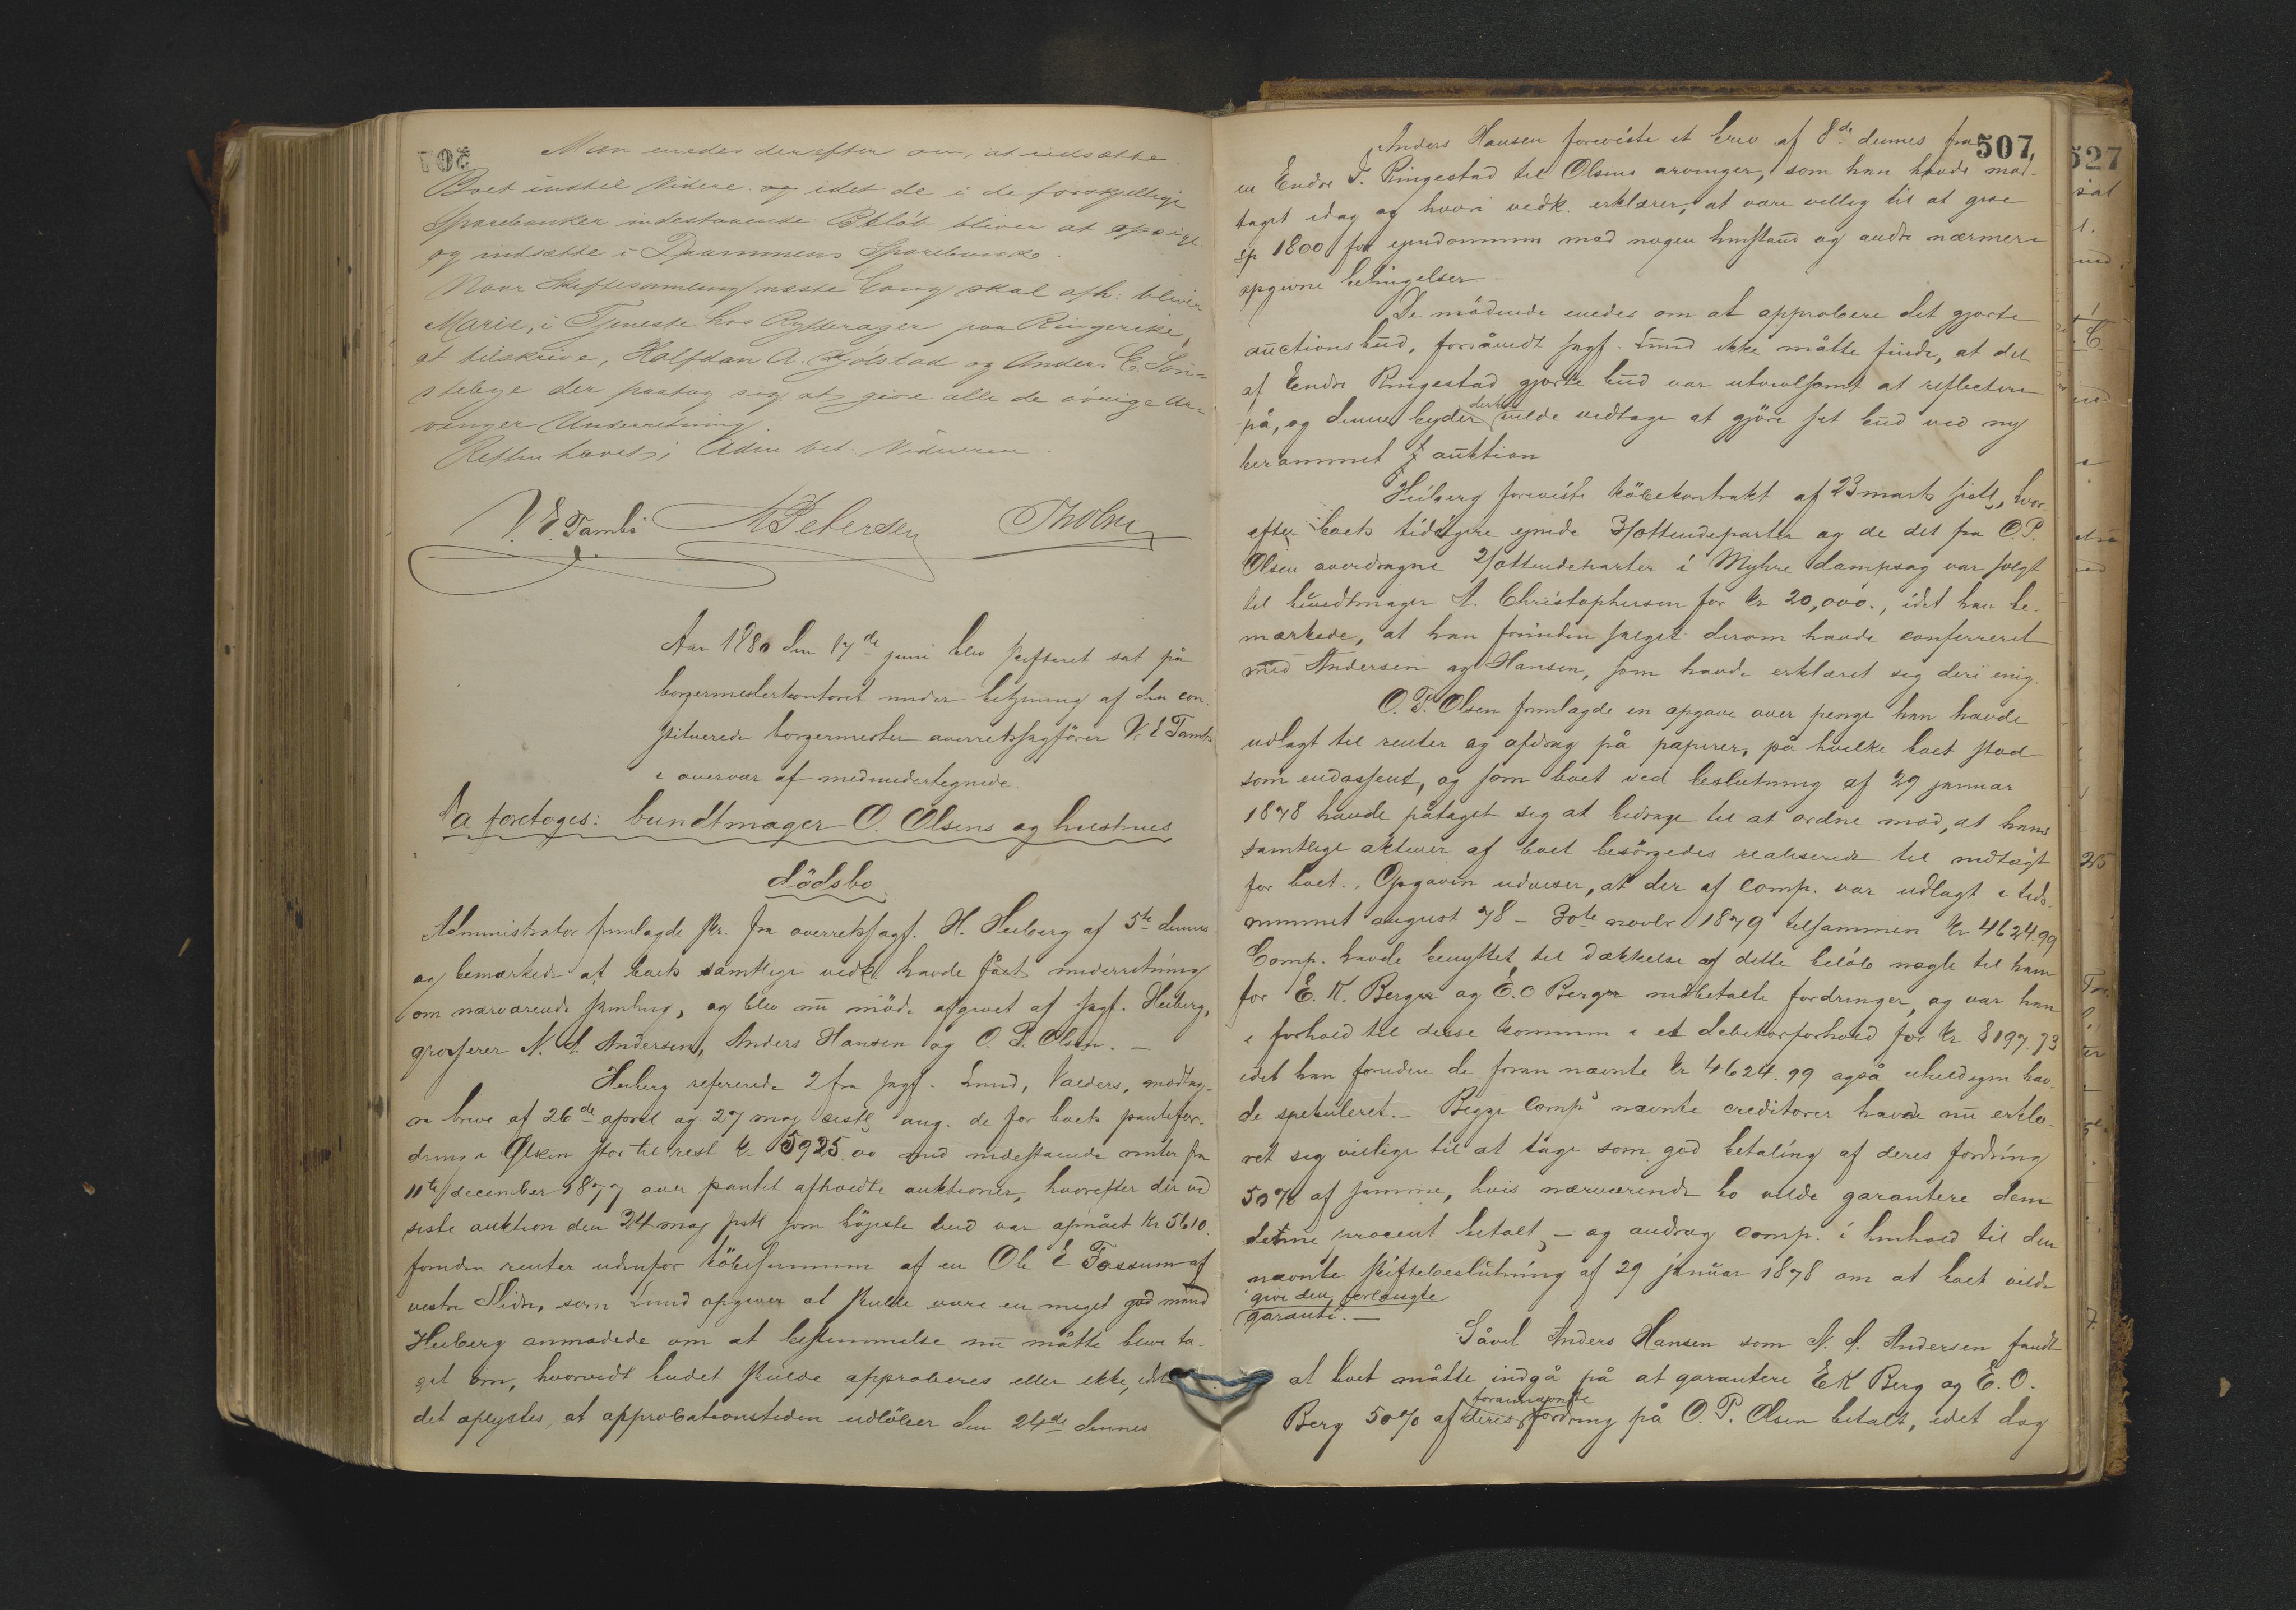 Man enedes derefter om, at udsætte
Boet indtil Videre og idet de i de forskjellige
Sparebanker indestaaende Beløb bliver at opsige
og indsætte i Drammens Sparebank.
Naar Skiftesamling næste Gang skal afh: bliver
Marie, i Tjeneste hos Rytterager paa Ringerike,
at tilskrive, Halfdan A. Gjolstad og Anders C.
der paatog sig at give alle de øvrige Ar-
vinger Underretning.
Retten hævet; Eden bet. Vidnerne.
V. E. Tambs A Petersen Tholm
Aar 1880 den 17de juni blev skifteret sat på
borgermesterkontoret under betjening af den con-
stituerede borgermester overretssagfører V. E Tambs
i overvær af medundertegnede.
Da foretoges: bundtmager O. Olsens og hustrues
dödsbo
Administrator fremlagde skr. fra overretssagf. H. Heiberg af 5te dennes
og bemærkede at boets samtlige vedk. havde fået underretning
om nærværende samling, og blev nu möde afgivet af sagf. Heiberg,
grosserer N. A. Andersen, Anders Hansen og O. P. Olsen. –
Heiberg refererede 2 fra sagf. Lund, Valders, modtag-
ne breve af 26de april og 27 maj sistl ang. de for boets pantefor-
dring i Ølken stor til rest kr 5925.00 med indestaaende renter fra
11te december 1877 over pantet afholdte auktioner, hvorefter der ved
siste auktion den 24 maj sistl som höjeste bud var opnået kr 5610.
foruden renter udenfor köbesummen af en Ole E Fossum af
vestre Slidre, som Lund opgiver at skulle være en meget god mand
Heiberg anmodede om at bestemmelse nu måtte blive ta-
get om, hvorvidt budet skulde approberes eller ikke, idet
det oplystes, at approbationstiden udlöber den 24de dennes
507
Anders Hansen foreviste et brev af 8de dennes fra
en Endre T. Ringestad til Olsens arvinger, som han havde mod-
taget idag og hvori vedk. erklærer, at være villig til at give
sp 1800 for ejendommen mod nogen henstand og andre nærmere
opgivne betingelser –
De mödende enedes om at approbere det gjorte
auctionsbud, forsåvidt sagf. Lund ikke måtte finde, at det
af Endre Ringestad gjorte bud var utvivlsomt at reflectere
på, og denne byder derhos vilde vedtage at gjöre sit bud ved ny
berammet auktion
Heiberg foreviste köbekontrakt af 23 marts sistl, hvor-
efter boets tidligere ejende 3/ottendeparter og de det fra O. P.
Olsen overdragne 2/ottendeparter i Myhre dampsag var solgt
til bundtmager A. Christophersen for kr 20,000., idet han be-
mærkede, at han forinden salget derom havde confereret
med Andersen og Hansen, som havde erklæret sig deri enig.
O. P. Olsen fremlagde en opgave over penge han havde
udlagt til renter og afdrag på papirer, på hvilke boet stod
som endossent, og som boet ved beslutning af 29 januar
1878 havde påtaget sig at bidrage til at ordne mod, at hans
samtlige aktiver af boet besörgedes realiserede til indtægt
for boet. Opgaven udviser, at der af comp. var udlagt i tids-
rummet august 78 – 30te novbr 1879 tilsammen kr 4624.99
Comp. havde benyttet til dækkelse af dette beløb nogle til ham
for E. K. Berger og E. O Berger indbetalte fordringer, og var han
i forhold til disse kommen i et debitorforhold for kr 8197.73
idet han foruden de foran nævnte kr 4624.99 også uheldigen hav-
de spekuleret. – Begge comp's nævnte creditorer havde nu erklæ-
ret sig villige til at tage som god betaling af deres fordring
50% af samme, hvis nærværende bo vilde garantere dem
denne procent betalt, – og androg comp. i henhold til den
nævnte skiftebeslutning af 29 januar 1878 om at boet vilde
give den forlangte
garanti. –
Såvel Anders Hansen som N. A. Andersen fandt
at boet måtte indgå på at garantere E K Berg og E. O.
Berg 50% af deres forannævnte fordring på O. P. Olsen betalt, idet dog
527